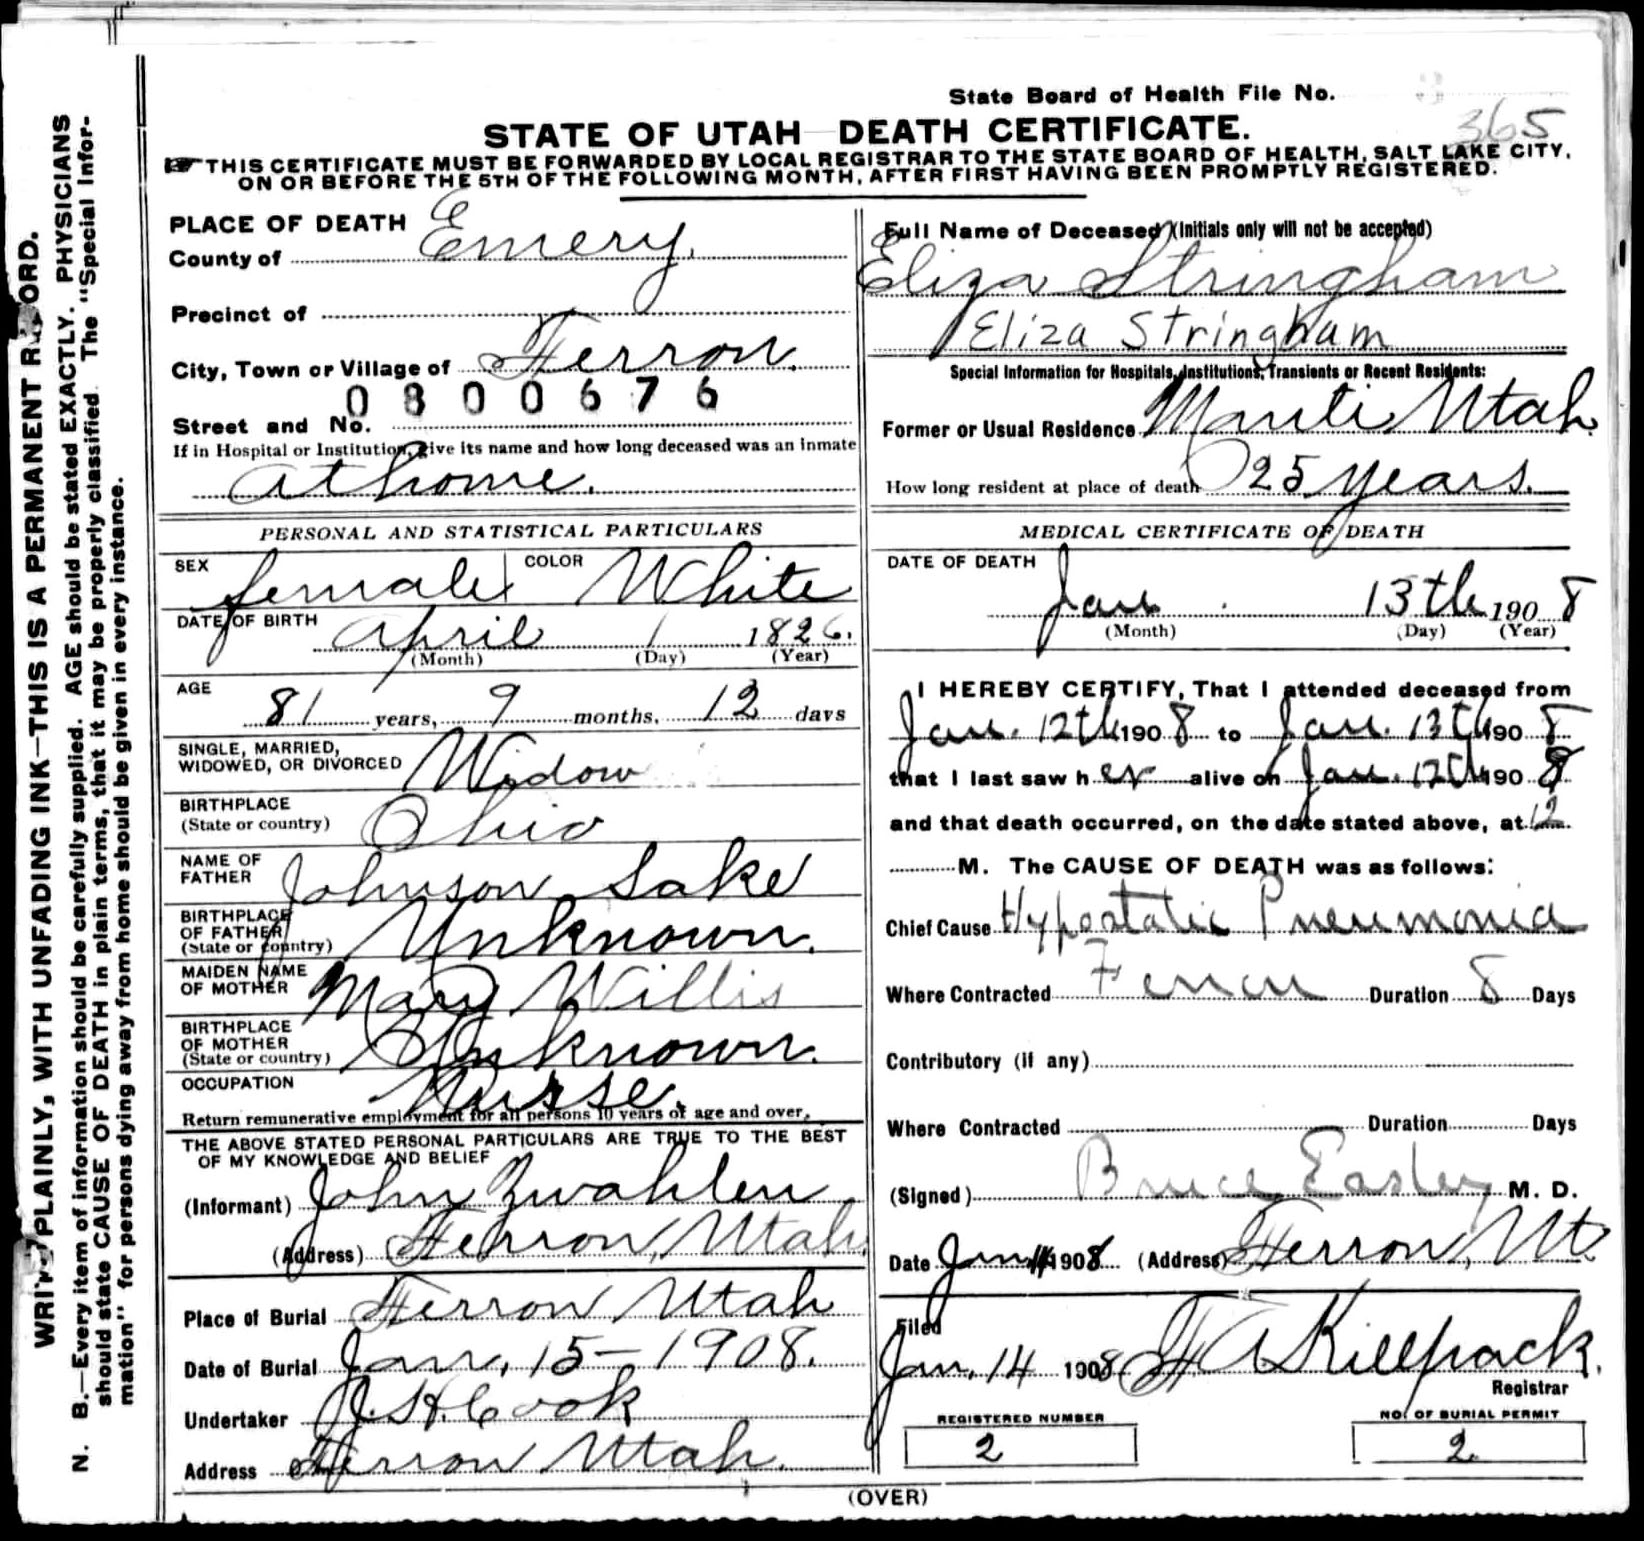 State Board of Health File No.
365
STATE OF UTAH DEATH CERTIFICATE.
THIS CERTIFICATE MUST BE FORWARDED BY LOCAL REGISTRAR TO THE STATE BOARD OF HEALTH, SALT LAKE CITY,
ON OR BEFORE THE 5TH OF THE FOLLOWING MONTH, AFTER FIRST HAVING BEEN PROMPTLY REGISTERED.
WRITE PLAINLY, WITH UNFADING INK—THIS IS A PERMANENT RECORD.
N. B.—Every item of information should be carefully supplied. AGE should be stated EXACTLY. PHYSICIANS
should state CAUSE OF DEATH in plain terms, that it may be properly classified. The "Special Infor-
mation" for persons dying away from home should be given in every instance.
PLACE OF DEATH
County of Emery.
Precinct of
City, Town or Village of Ferron.
0800676
Street and No.
If in Hospital or Institution, give its name and how long deceased was an inmate
at home.
PERSONAL AND STATISTICAL PARTICULARS
SEX female COLOR White
DATE OF BIRTH April 1 1826.
(Month) (Day) (Year)
AGE 81 years, 9 months, 12 days
SINGLE, MARRIED,
WIDOWED, OR DIVORCED Widow
BIRTHPLACE
(State or country) Ohio
NAME OF
FATHER Johnson Lake
BIRTHPLACE
OF FATHER
(State or country) Unknown.
MAIDEN NAME
OF MOTHER Mary Willis
BIRTHPLACE
OF MOTHER
(State or country) Unknown.
OCCUPATION Nurse.
Return remunerative employment for all persons 10 years of age and over.
THE ABOVE STATED PERSONAL PARTICULARS ARE TRUE TO THE BEST
OF MY KNOWLEDGE AND BELIEF
(Informant) John Zwahlen
(Address) Ferron, Utah.
Place of Burial Ferron Utah
Date of Burial Jan. 15—1908.
Undertaker J. H. Cook
Address Ferron Utah.
Full Name of Deceased (Initials only will not be accepted)
Eliza Stringham
Eliza Stringham
Special Information for Hospitals, Institutions, Transients or Recent Residents:
Former or Usual Residence Manti Utah
How long resident at place of death 25 years.
MEDICAL CERTIFICATE OF DEATH
DATE OF DEATH
Jan 13th 1908
(Month) (Day) (Year)
I HEREBY CERTIFY, That I attended deceased from
Jan. 12th 1908 to Jan. 13th 1908
that I last saw her alive on Jan. 12th 1908
and that death occurred, on the date stated above, at 12
M. The CAUSE OF DEATH was as follows:
Chief Cause Hypostatic Pneumonia
Where Contracted Ferron Duration 8 Days
Contributory (if any)
Where Contracted Duration Days
(Signed) Bruce Easley M. D.
Date Jan 1908 (Address) Ferron, Ut.
Filed
Jan. 14 1908 A Killpack.
Registrar
REGISTERED NUMBER
2
NO. OF BURIAL PERMIT
2
(OVER)